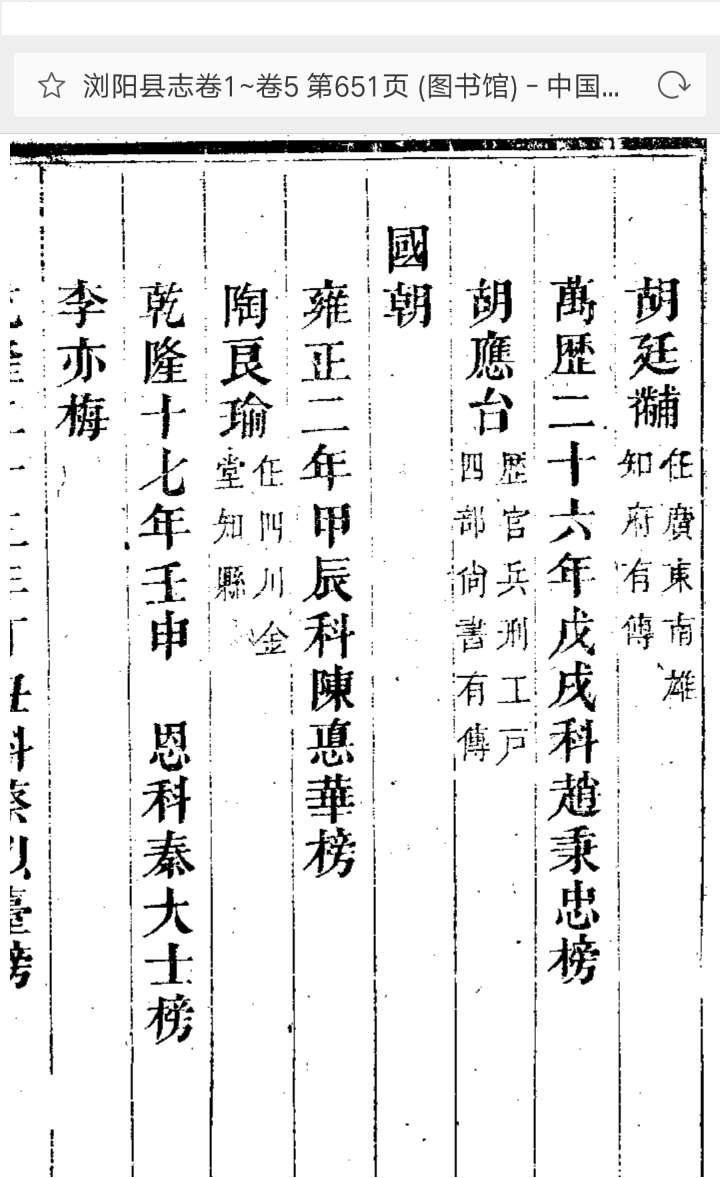 浏阳县志卷1~卷5 第651页 (图书馆) - 中国...
胡廷黼任廣東南雄知府有傳
萬歷二十六年戊戌科趙秉忠榜
胡應台歷官兵刑工戸四部尙書有傳
國朝
雍正二年甲辰科陳悳華榜
陶良瑜任四川金堂知縣
乾隆十七年壬申 恩科秦大士榜
李亦梅
丑科蔡以臺榜